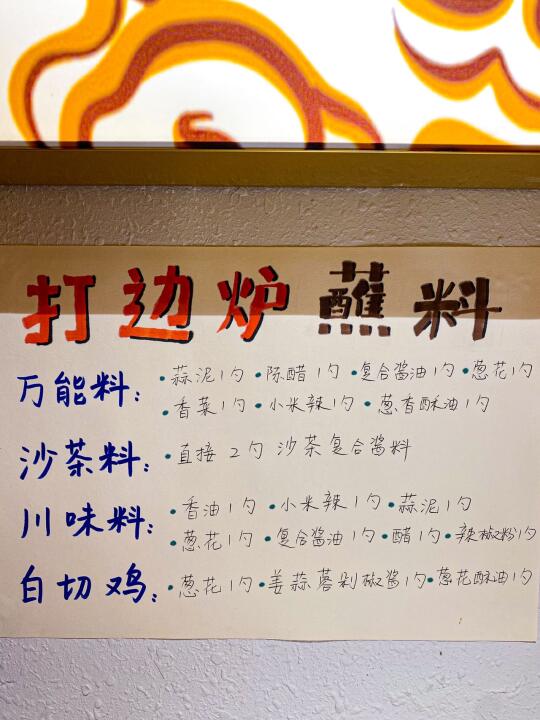 打边炉蘸料
万能料：•蒜泥1勺•陈醋1勺•复合酱油1勺•葱花1勺
•香菜1勺•小米辣1勺•葱香酥油1勺
沙茶料：•直接2勺沙茶复合酱料
川味料：•香油1勺•小米辣1勺•蒜泥1勺
•葱花1勺•复合酱油1勺•醋1勺•辣椒粉1勺
白切鸡：•葱花1勺•姜蒜蓉剁椒酱1勺•葱花酥油1勺